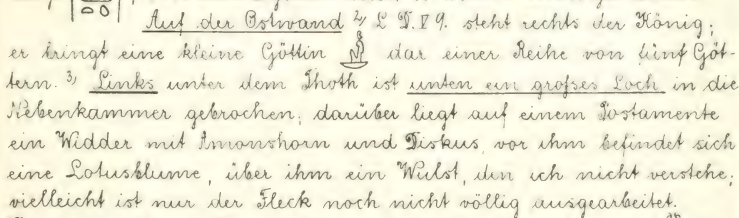 Auf der Ostwand 2) L. D. V 9. steht rechts der König;
er bringt eine kleine Göttin dar einer Reihe von fünf Göt-
tern. 3) Links unter dem Thoth ist unten ein großes Loch in die
Nebenkammer gebrochen; darüber liegt auf einem Postamente
ein Widder mit Amonshorn und Diskus, vor ihm befindet sich
eine Lotusblume, über ihm ein Wulst, den ich nicht verstehe;
vielleicht ist nur der Fleck noch nicht völlig ausgearbeitet.